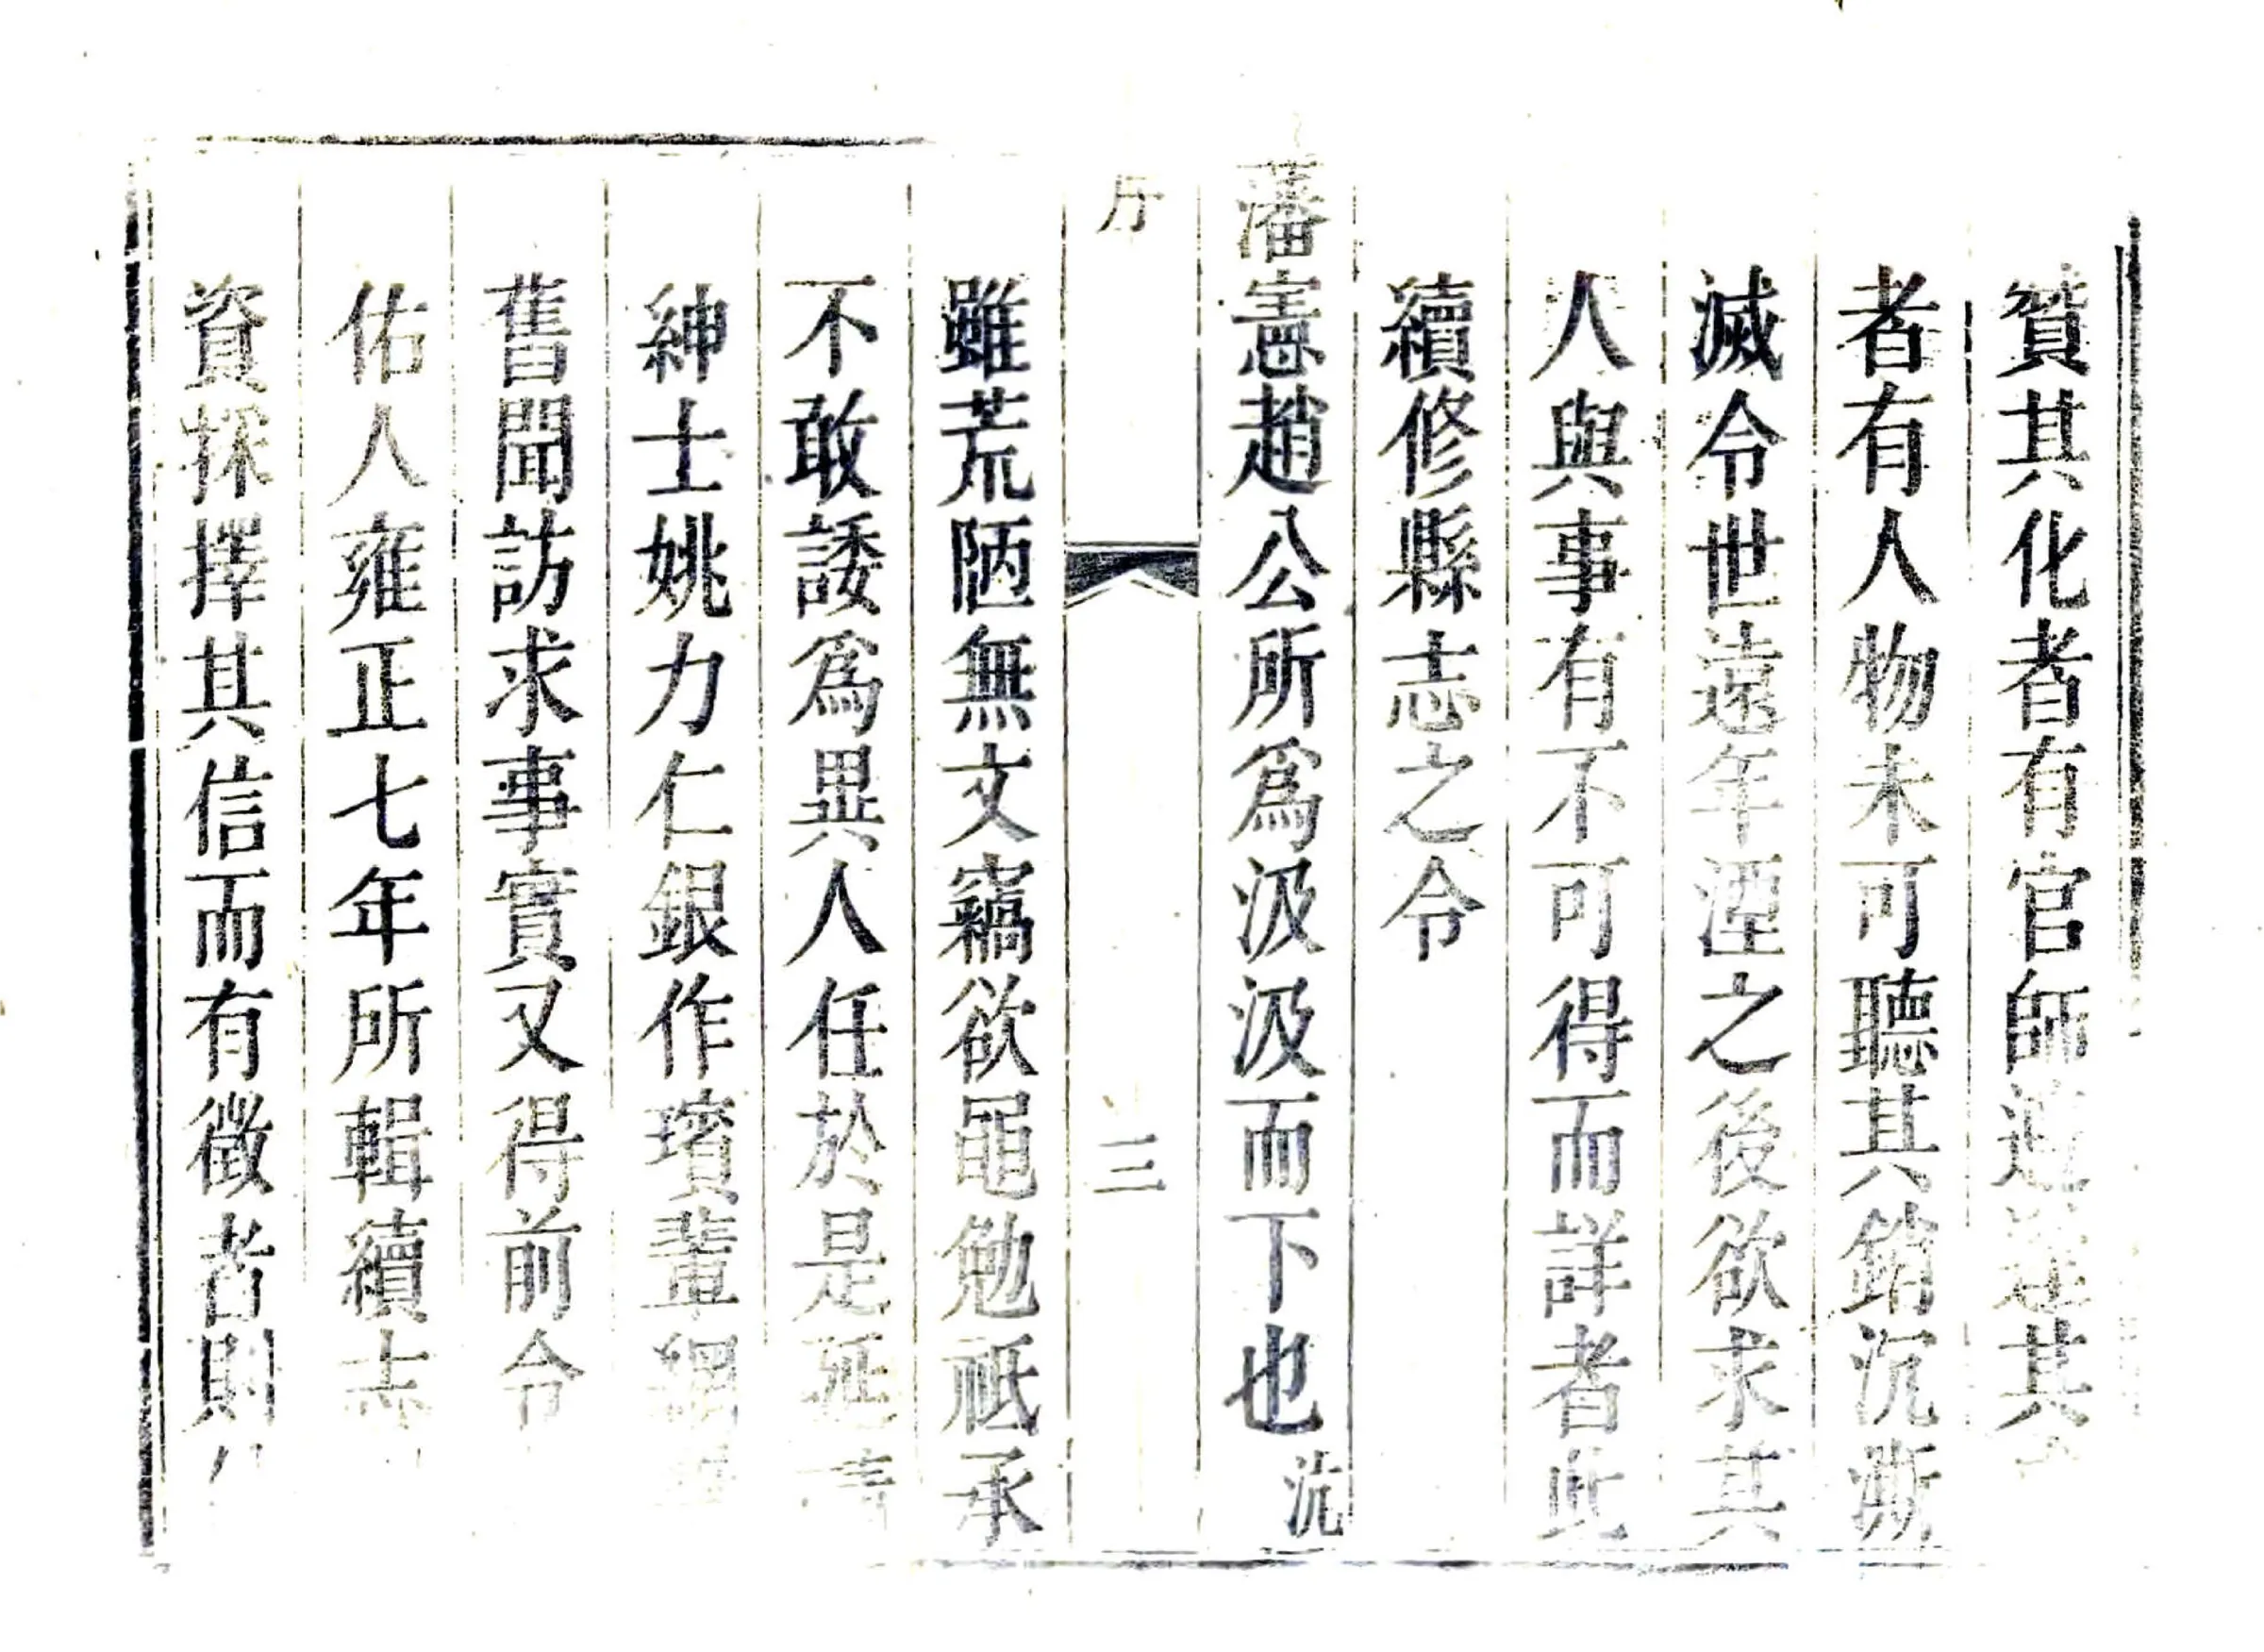 贊其化者有官師
其
者有人物未可聽其銷沉澌
滅令世遠年湮之後欲求其
人與事有不可得而詳者此
續修縣志之令
藩憲趙公所爲汲汲而下也沆
三
雖荒陋無文竊欲黽勉祗承
不敢諉爲異人任於是延
紳士姚力仁銀作璸輩網
舊聞訪求事實又得前令
佑人雍正七年所輯續志
資採擇其信而有徵者則